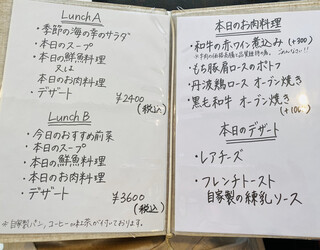 Lunch A
・季節の海の幸のサラダ
・本日のスープ
・本日の鮮魚料理
又は
本日のお肉料理
・デザート
¥2400
(税込)
Lunch B
・今日のおすすめ前菜
・本日のスープ
・本日の鮮魚料理
・本日のお肉料理
・デザート
¥3600
(税込)
※自家製パン、コーヒーor紅茶が付いております。
本日のお肉料理
・和牛の赤ワイン煮込み (+300)
・もち豚肩ロースのポトフ
・丹波鶏ロース オーブン焼き
・黒毛和牛 オーブン焼き
本日のデザート
・レアチーズ
・フレンチトースト
自家製の練乳ソース